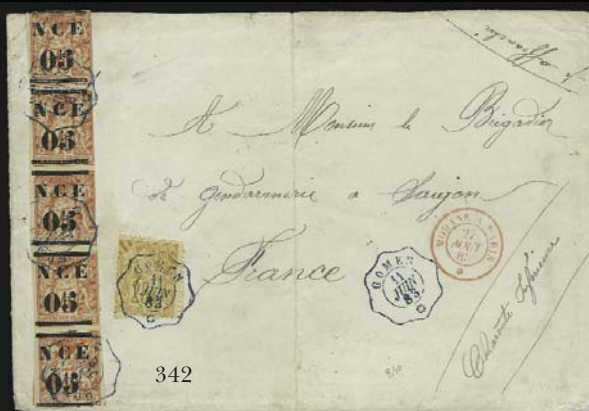 NCE
05
NCE
05
NCE
05
NCE
05
NCE
05
A Monsieur le Brigadier
de gendarmerie a Saujon
France
Charente Inférieure
GOMEN
11
JUIN
83
GOMEN
11
JUIN
83
MODANE A PARIS
27
AOUT
342